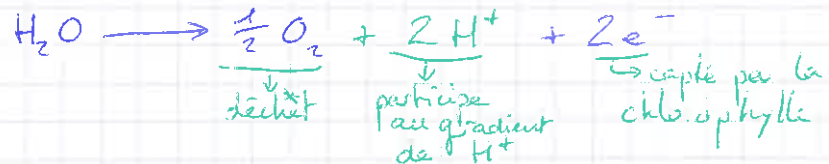 H₂O ⟶ ½ O₂ + 2 H⁺ + 2 e⁻
déchet*
participe au gradient de H⁺
capté par la chlorophylle